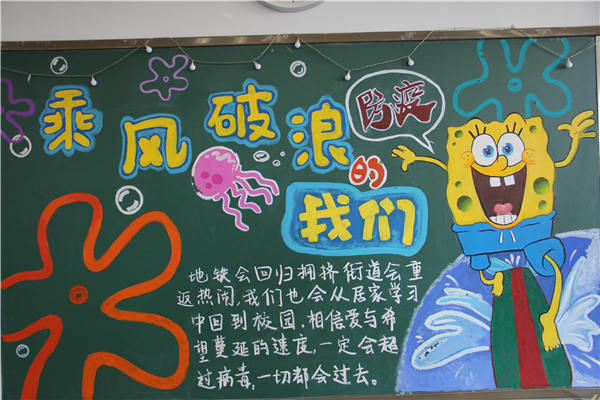 乘风破浪的
防疫
我们
地铁会回归拥挤,街道会重
返热闹,我们也会从居家学习
中回到校园,相信爱与希
望蔓延的速度,一定会超
过病毒,一切都会过去。